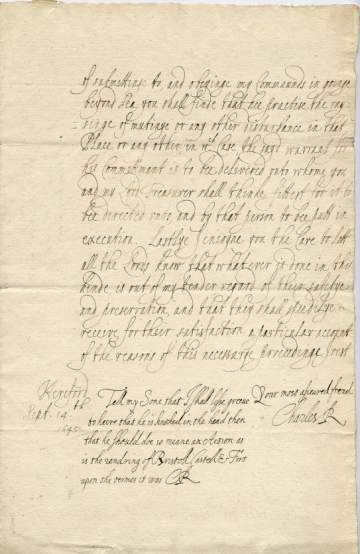 of submittinge to, and obeyinge my Commands in goeinge
beyond Sea, you shall finde that hee practise the ray-
singe of mutinye or any other disturbance in that
Place, or any other, in wch Case the sayd warrant for
his Committment is to bee delivered unto whome you
and my Lord Treasurer shall thinke fittest for it to
bee directed unto and by that person to bee putt in
execution. Lastlye I enjoyne you the Care to lett
all the Lords know that whatever is done in this
kinde is out of my tender regard of their safetye
and preservation, and that they shall speedilye
receive for their satisfaction a particular account
of the reasons of this necessarye proceedinge I rest
Your most asseured frend
Charles R
Hereford
Sept. 14th
1645
Tell my Sone that I shall lesse greeve
to heere that he is knoked in the head then
that he should doe so meane an Action as
is the rendring of Bristoll Castell & Fort
upon the termes it was CR